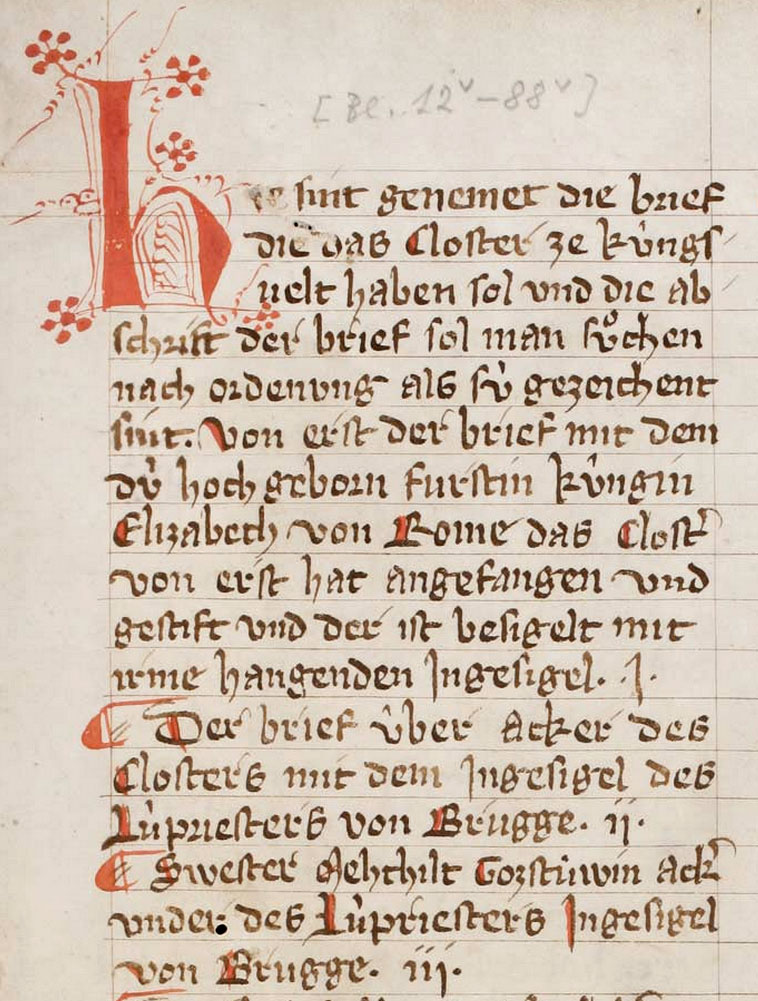 [Bl. 12v–88v]
Hie sint genemet die brief
die das Closter ze kúngs
uelt haben sol vnd die ab
schrift der brief sol man sůchen
nach ordenvng als sú gezeichent
sint. Von erst der brief mit dem
dú hochgeborn furstin kúngin
Elizabeth von Rome das Clost̄
von erst hat angefangen vnd
gestift vnd der ist besigelt mit
irme hangenden Ingesigel. .I.
¶ Der brief úber acker des
Closters mit dem Ingesigel des
Lúpriesters von Brugge. ii.
¶ Swester Mehthilt Gozstúwin ack̄
vnder des Lúpriesters Ingesigel
von Brugge. iii.